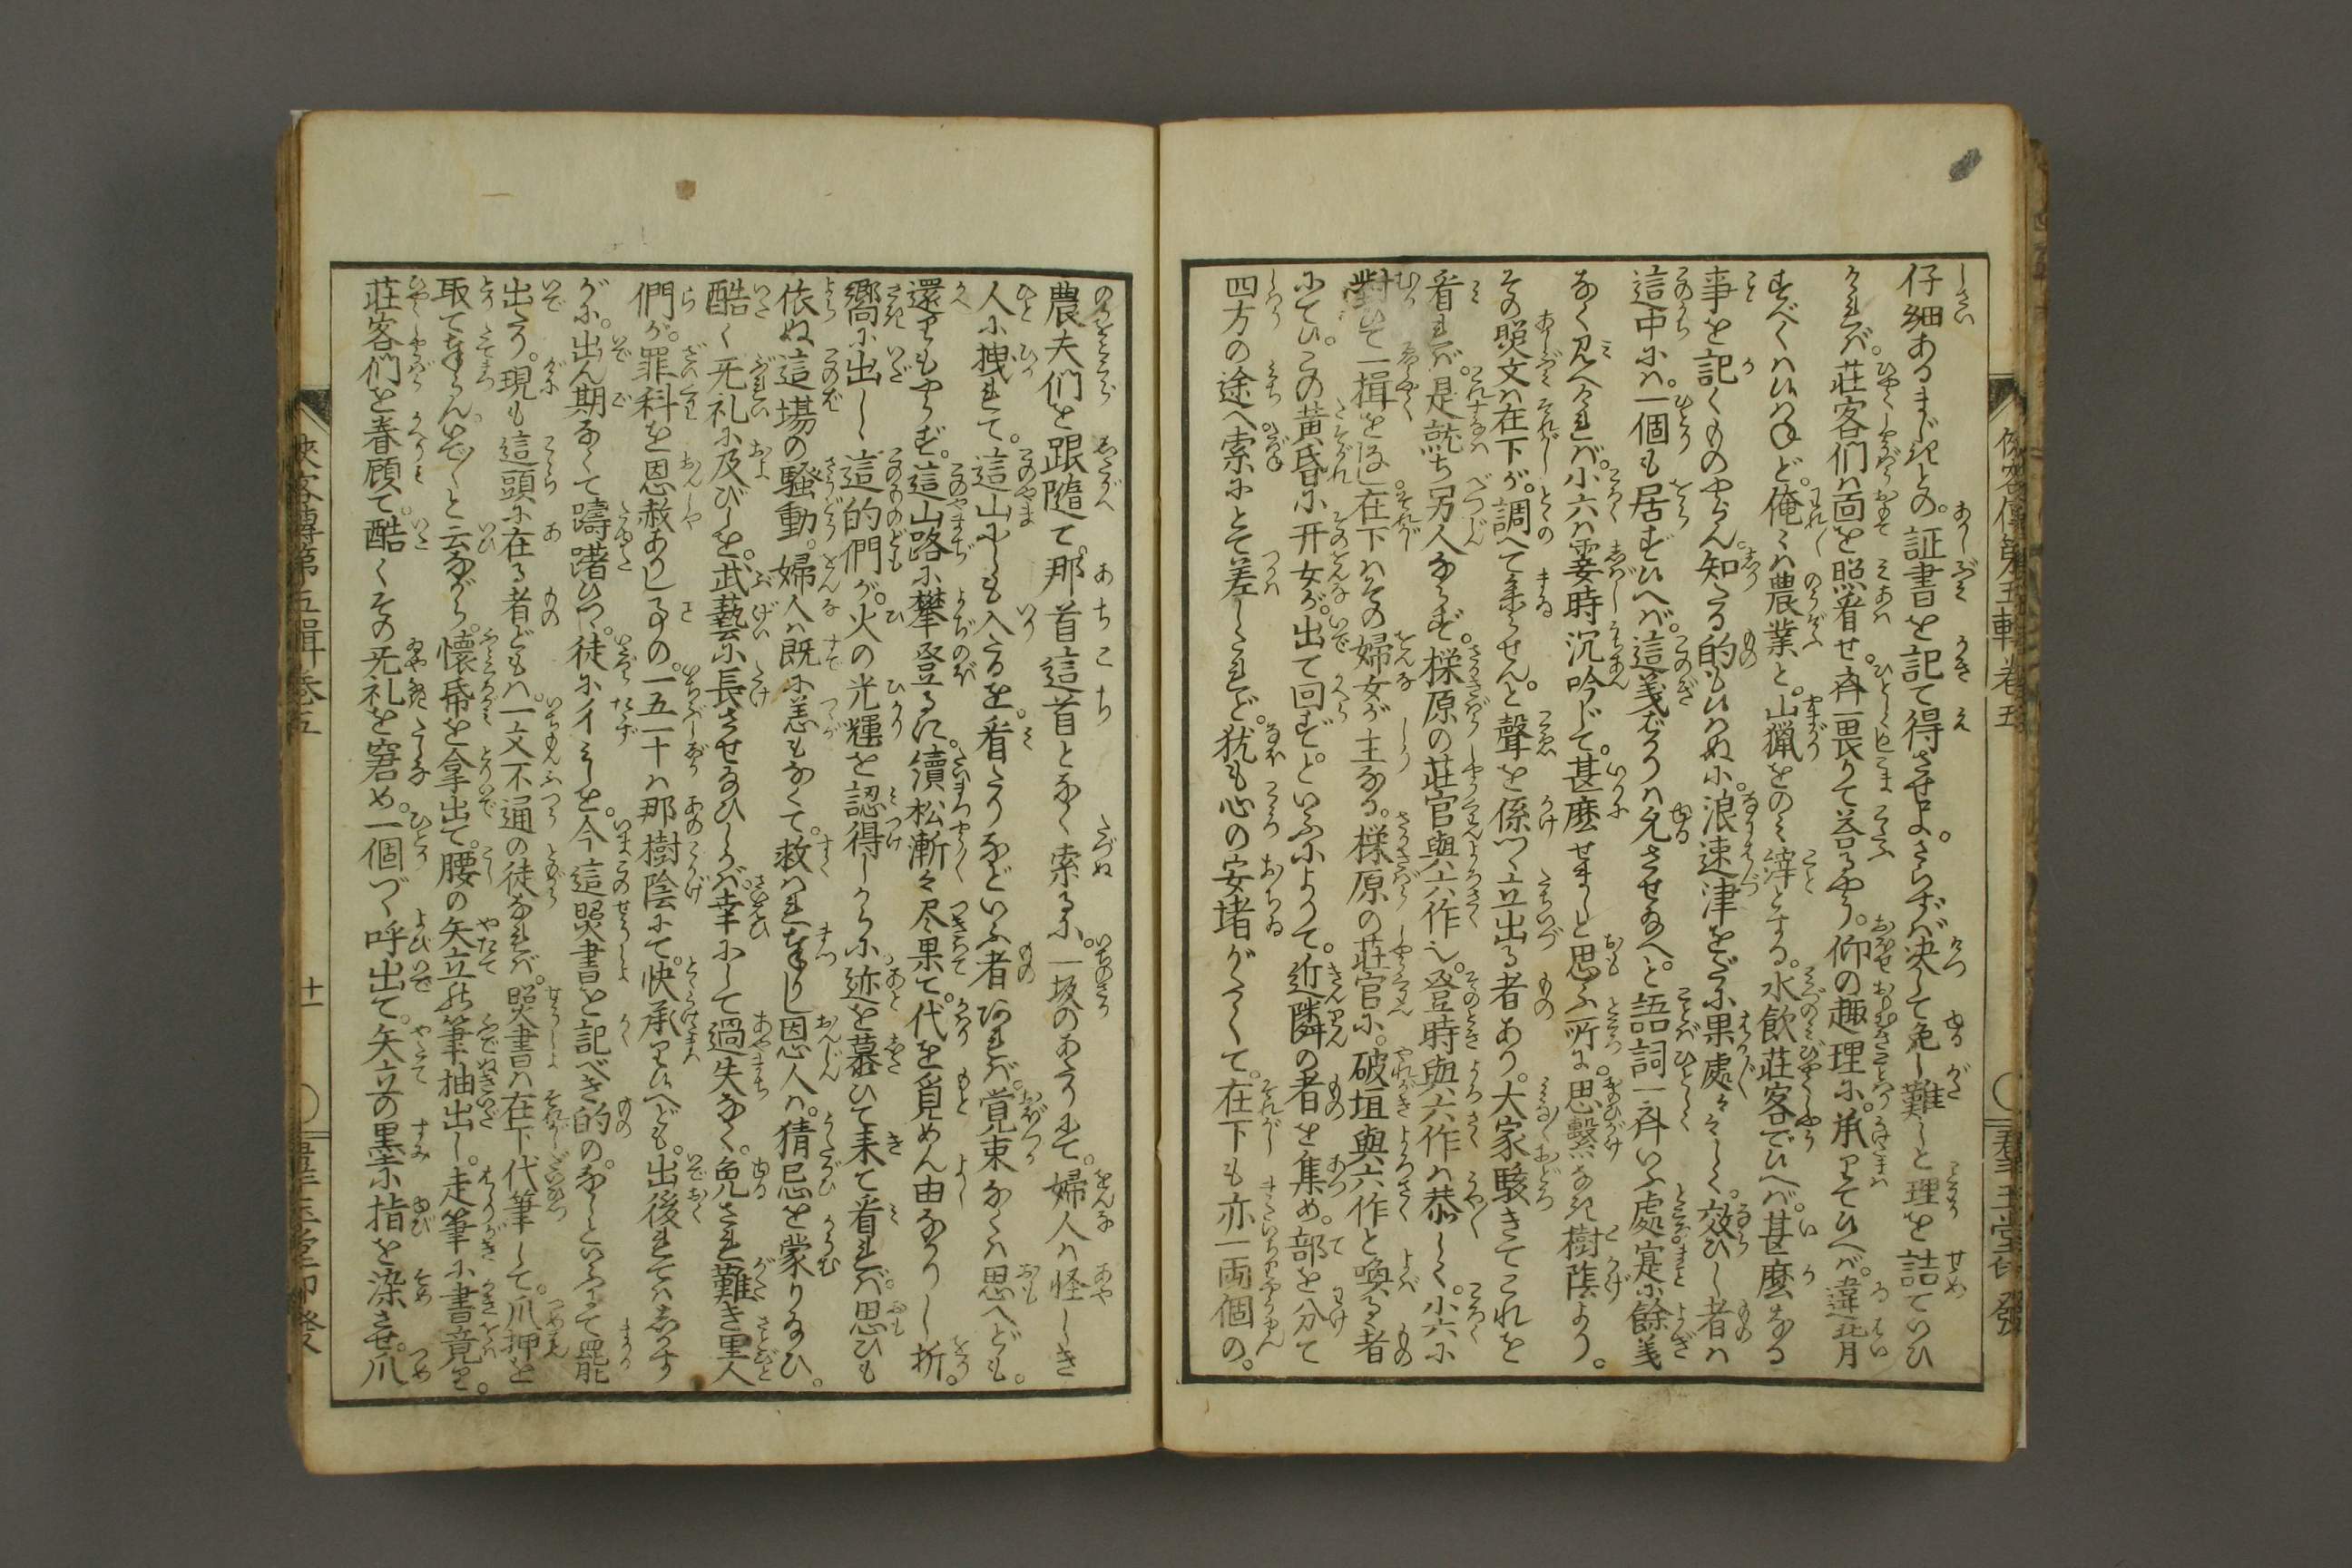 仔細あるまじきとの。証書を記て得させよ。さらずば决して免し難しと理を詰ていひ
ければ。荘客們は面を照着せ。齊一畏りて答るやう。仰の趣理に。承りてひへば。違背
すべくはひはねど。俺々は農業と。山猟をのみ緯とする。水飲荘客でひへば。甚麼なる
事を記くものやらん。知たる的もひはぬに。浪速津をだに果處々々しく。效ひし者は
這中には。一個も居ずひへば。這義ばかりは免させ給へ。と語詞一齊いふ處寔に餘義
なく見へければ。小六は霎時沈吟じて。甚麼せましと思ふ所に。思繫なき樹蔭より。
その照文は在下が。調へて参らせん。と聲を係つゝ立出る者あり。大家駭きてこれを
看れば。是就ち另人ならず。樣原の荘官與六作也。登時與六作は恭しく。小六に
對ひて一揖をなし。在下はその婦女が主なる。樣原の荘官に。破垣與六作と喚るゝ者
にてひ。この黄昏に开女が。出て回ず。といふによりて。近隣の者を集め。部を分て
四方の途へ索にとて差したれど。犹も心の安堵がたくて。在下も亦一両個の。
農夫們を跟隨て。那首這首となく索るに。一坂のあたりにて。婦人は怪しき
人に拽れて。這山にしも入たるを。看たりなどいふ者あれば。覚束なくは思へども。
還りもやらず。這山路に攀登るに。續松漸々尽果て。代を覓めん由なかりし折。
嚮に出し這的們が。火の光輝を認得しからに迹を慕ひて来て看れば。思ひも
依ぬ這場の騒動。婦人は既に恙もなくて。救はれまつりし恩人は。猜忌を蒙り給ひ。
酷く无礼に及びしを。武藝に長させ給ひしかば。幸にして過失なく。免され難き里人
們が。罪科を恩赦ありし事の。一五一十は那樹陰にて。快承りひへども。出後れてはゐかゞす
がに。出ん期なくて躊躇ひつ。徒に彳みしを。今這照書を記べき的の。なしといふにて罷
出たり。現も這頭に在る者どもは。一文不通の徒なれば。照書は在下代筆して。爪押を
取てまゐらん。いで〳〵と云ながら。懐帋を拿出て。腰の矢立の筆抽出し。走筆に書竟り。
荘客們を㫪顧て。酷くその无礼を窘め。一個づゝ呼出て。矢立の墨に指を染させ。爪
侠客傳第五輯巻五
十一
群玉堂印發